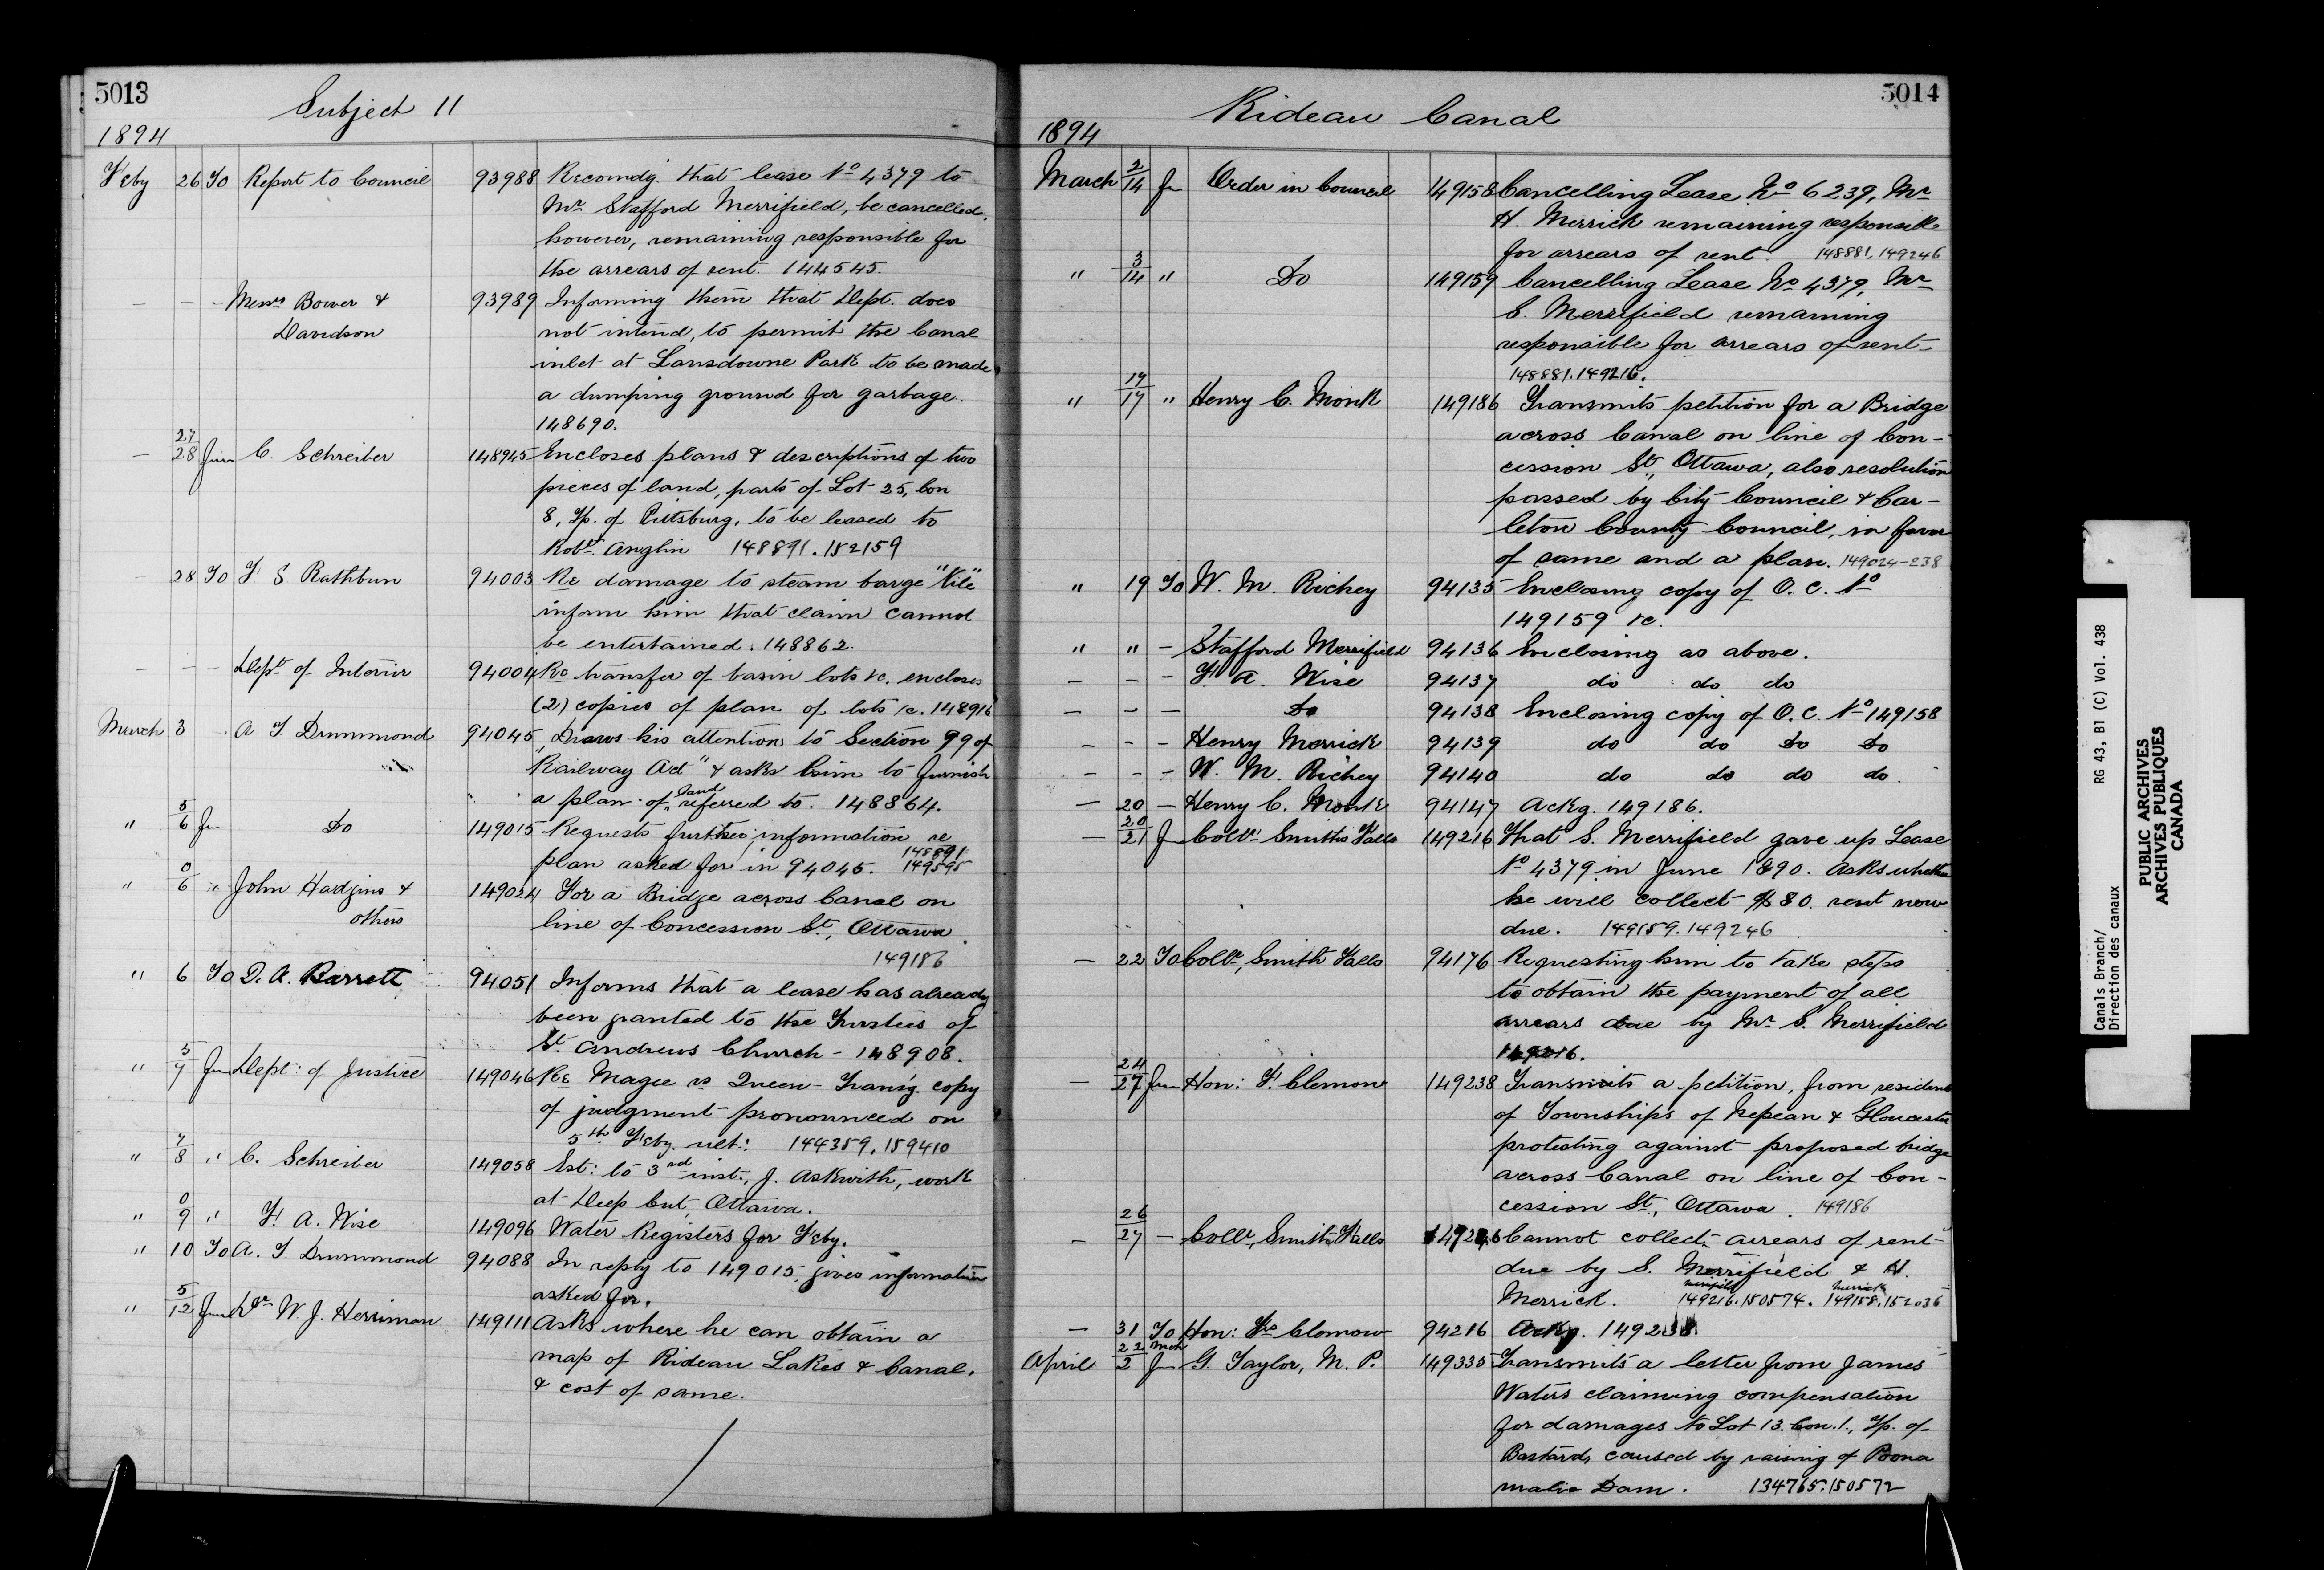 5013
Subject 11
1894
Feby 26 To Report to Council 93988 Recomdg. that lease No 4379 to
Mr. Stafford Merrifield, be cancelled,
however, remaining responsible for
the arrears of rent. 144545.
— — - Messrs Bower & 93989 Informing them that Dept. does
Davidson not intend, to permit the Canal
inlet at Lansdowne Park to be made
a dumping ground for garbage.
148690.
— 27/28 From C. Schreiber 148945 Encloses plans & descriptions of two
pieces of land, parts of Lot 25, Con
8, Tp. of Pittsburg, to be leased to
Robt. Anglin 148891.152159
— 28 To F. S. Rathbun 94003 Re damage to steam barge "Nile"
inform him that claim cannot
be entertained. 148862.
— — — Dept of Interior 94004 Re transfer of basin lots &c. encloses
(2) copies of plan of lots &c. 148916
March 3 - A. T. Drummond 94045 Draws his attention to "Section 99 of
Railway Act" & asks him to furnish
a plan of land referred to. 148864.
" 5/6 Fm Do 149015 Requests further information re
plan asked for in 94045. 148891 149595
" 0/6 " John Hodgins & 149024 For a Bridge across Canal on
others line of Concession St., Ottawa.
149186
" 6 To D. A. Barrett 94051 Informs that a lease has already
been granted to the Trustees of
St. Andrews Church - 148908.
" 5/7 Fm Dept: of Justice 149046 Re Magee vs Queen - Transg. copy
of judgment pronounced on
5th Feby. ult: 144359.159410
" 7/8 " C. Schreiber 149058 Est: to 3rd inst., J. Askwith, work
at Deep Cut, Ottawa.
" 0/9 " F. A. Wise 149096 Water Registers for Feby.
" 10 To A. T. Drummond 94088 In reply to 149015, gives information
asked for.
" 5/12 From Dr W. J. Herriman 149111 Asks where he can obtain a
map of Rideau Lakes & Canal,
& cost of same.
5014
Rideau Canal
1894
March 2/14 Fm Order in Council 149158 Cancelling Lease No 6239, Mr
H. Merrick remaining responsible
for arrears of rent. 148881, 149246
" 3/14 " Do 149159 Cancelling Lease No 4379, Mr
S. Merrifield remaining
responsible for arrears of rent
148881.149216.
" 14/17 " Henry C. Monk 149186 Transmits petition for a Bridge
across Canal on line of Con-
cession St., Ottawa, also resolution
passed by City Council & Car-
leton County Council, in favor
of same and a plan. 149024-238
" 19 To W. M. Richey 94135 Enclosing copy of O. C. No
149159 &c.
" " - Stafford Merrifield 94136 Enclosing as above.
— — - F. A. Wise 94137 do do do
— — — Do 94138 Enclosing copy of O. C. No 149158
— - - Henry Merrick 94139 do do Do Do
— - - W. M. Richey 94140 do do do do.
— 20 — Henry C. Monk 94147 Ackg. 149186.
— 20/21 F Collr Smiths Falls 149216 That S. Merrifield gave up Lease
No 4379 in June 1890. Asks whether
he will collect $80. rent now
due. 149159.149246
— 22 To Collr, Smith Falls 94176 Requesting him to take steps
to obtain the payment of all
arrears due by Mr. S. Merrifield
149216.
— 24/27 From Hon: F. Clemow 149238 Transmits a petition, from residents
of Townships of Nepean & Gloucester
protesting against proposed bridge
across Canal on line of Con-
cession St., Ottawa. 149186
— 26/27 — Collr, Smith Falls 149246 Cannot collect arrears of rent
due by S. Merrifield & H.
Merrick. merrifield 149216.150574. merrick 149158.152036
— 31 To Hon: Frs Clemow 94216 Ackg. 149238
April 22 Mch/2 Fm G. Taylor, M. P. 149335 Transmits a letter from James
Waters claiming compensation
for damages to Lot 13. Con. 1., Tp. of
Bastard, caused by raising of Poona
malie Dam. 134765.150572
Canals Branch/
Direction des canaux
RG 43, B1 (C) Vol. 438
PUBLIC ARCHIVES
ARCHIVES PUBLIQUES
CANADA